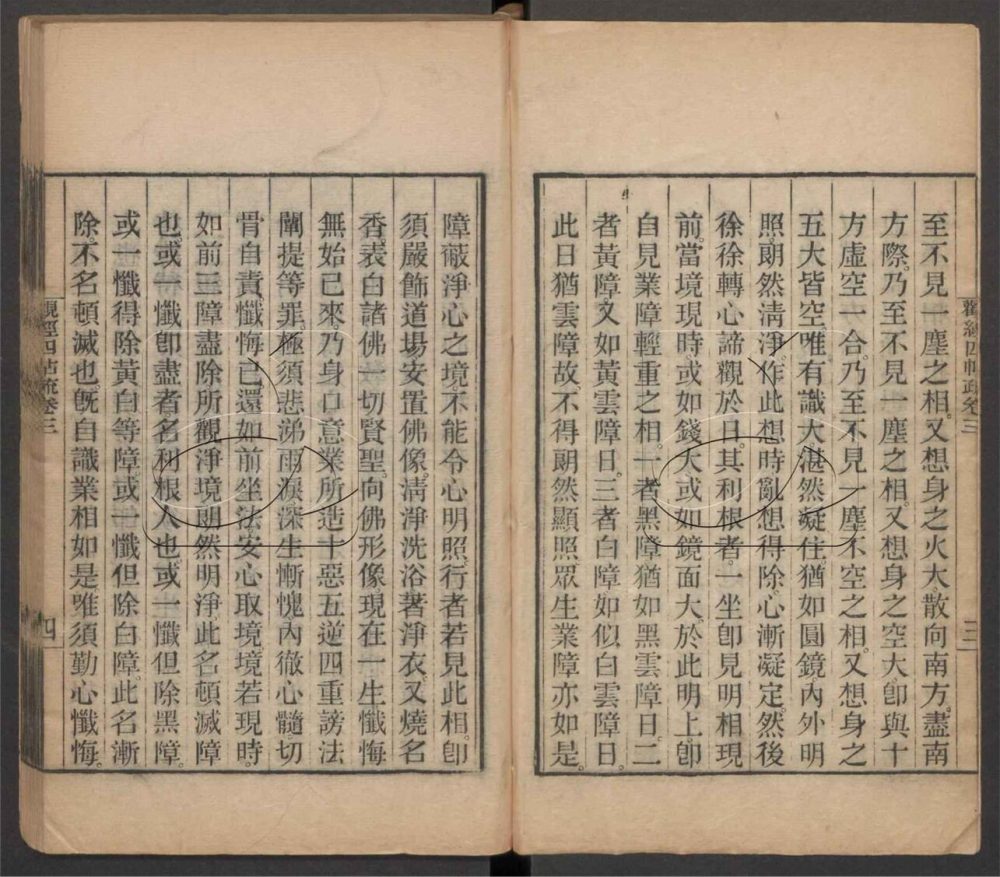 至不見一塵之相。又想身之火大散向南方。盡南
方際。乃至不見一塵之相。又想身之空大。卽與十
方虛空一合。乃至不見一塵不空之相。又想身之
五大皆空。唯有識大湛然凝住。猶如圓鏡。內外明
照。朗然淸淨。作此想時。亂想得除。心漸凝定。然後
徐徐轉心諦觀於日。其利根者。一坐卽見明相現
前。當境現時。或如錢大。或如鏡面大。於此明上卽
自見業障輕重之相。一者黑障。猶如黑雲障日。二
者黃障。又如黃雲障日。三者白障。如似白雲障日。
此日猶雲障故。不得朗然顯照。眾生業障亦如是。
三
障蔽淨心之境。不能令心明照。行者若見此相。卽
須嚴飾道場。安置佛像。淸淨洗浴。著淨衣。又燒名
香。表白諸佛一切賢聖。向佛形像。現在一生懺悔
無始已來。乃身口意業所造十惡五逆四重謗法
闡提等罪。極須悲涕雨淚。深生慚愧。內徹心髓。切
骨自責。懺悔已。還如前坐法。安心取境。境若現時。
如前三障盡除。所觀淨境朗然明淨。此名頓滅障
也。或一懺卽盡者。名利根人也。或一懺但除黑障。
或一懺得除黃白等障。或一懺但除白障。此名漸
除。不名頓滅也。旣自識業相如是。唯須勤心懺悔。
觀經四帖疏卷三
四